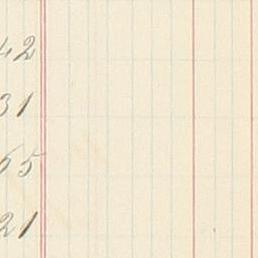 42
31
65
21